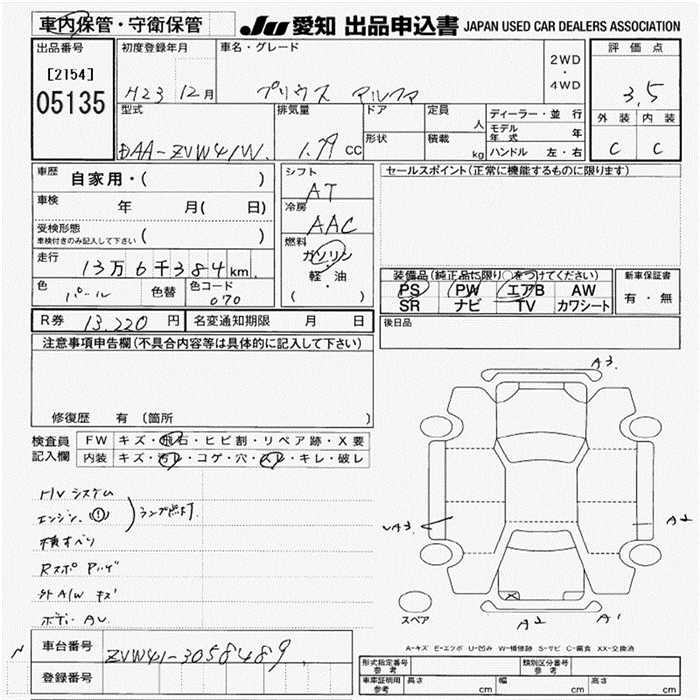 車内保管・守衛保管
JU 愛知 出品申込書 JAPAN USED CAR DEALERS ASSOCIATION
出品番号 [2154] 05135
初度登録年月 H23 12月
車名・グレード プリウス アルファ
2WD・4WD
評価点 3.5
外装 C 内装 C
型式 DAA-ZVW41W
排気量 1.79 CC
ドア
形状
定員 人
積載 kg
ディーラー・並行
モデル年式 年
ハンドル 左・右
車歴 自家用・( )
車検 年 月( 日)
受検形態 車検付きのみ記入して下さい ( )
走行 13万6千384km
色 パール 色替 色コード 070
シフト AT
冷房 AAC
燃料 ガソリン・軽・油 ( )
セールスポイント(正常に機能するものに限ります)
装備品(純正品に限り○をつけてください)
PS PW エアB AW
SR ナビ TV カワシート
新車保証書 有・無
R券 13,220 円 名変通知期限 月 日
後日品
注意事項申告欄(不具合内容等は具体的に記入して下さい)
修復歴 有 (箇所 )
検査員記入欄
FW キズ・飛石・ヒビ割・リペア跡・X要
内装 キズ・汚レ・コゲ・穴・スレ・キレ・破レ
H/V システム
エンジン (!) ランプ点灯
横すべり
外A/W キズ
ボディ AU
A3
A2
A2
A1
スペア
A-キズ E-エクボ U-凹み W-補修跡 S-サビ C-腐食 XX-交換済
N
車台番号 ZVW41-3058489
登録番号
形式指定番号 参考
類別区分番号 参考
車庫証明用 参考 長さ cm 幅 cm 高さ cm